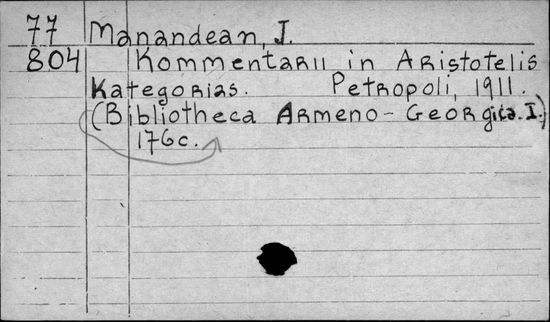 77 Manandean, J.
804 Kommentarii in Aristotelis
Kategorias. Petropoli, 1911.
(Bibliotheca Armeno-Georgica. I.)
176 c.